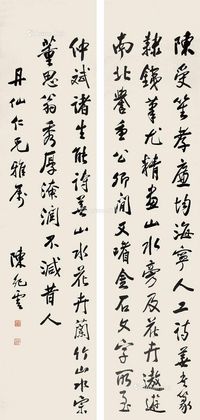 陳受笙孝廉均海寧人工詩善書篆
隸鐵筆尤精畫山水旁及花卉遨遊
南北譽重公卿間又嗜金石文字所至
仲斌諸生能詩善山水花卉蘭竹山水宗
董思翁秀厚淹潤不減昔人
丹仙仁兄雅屬
陳兆雲